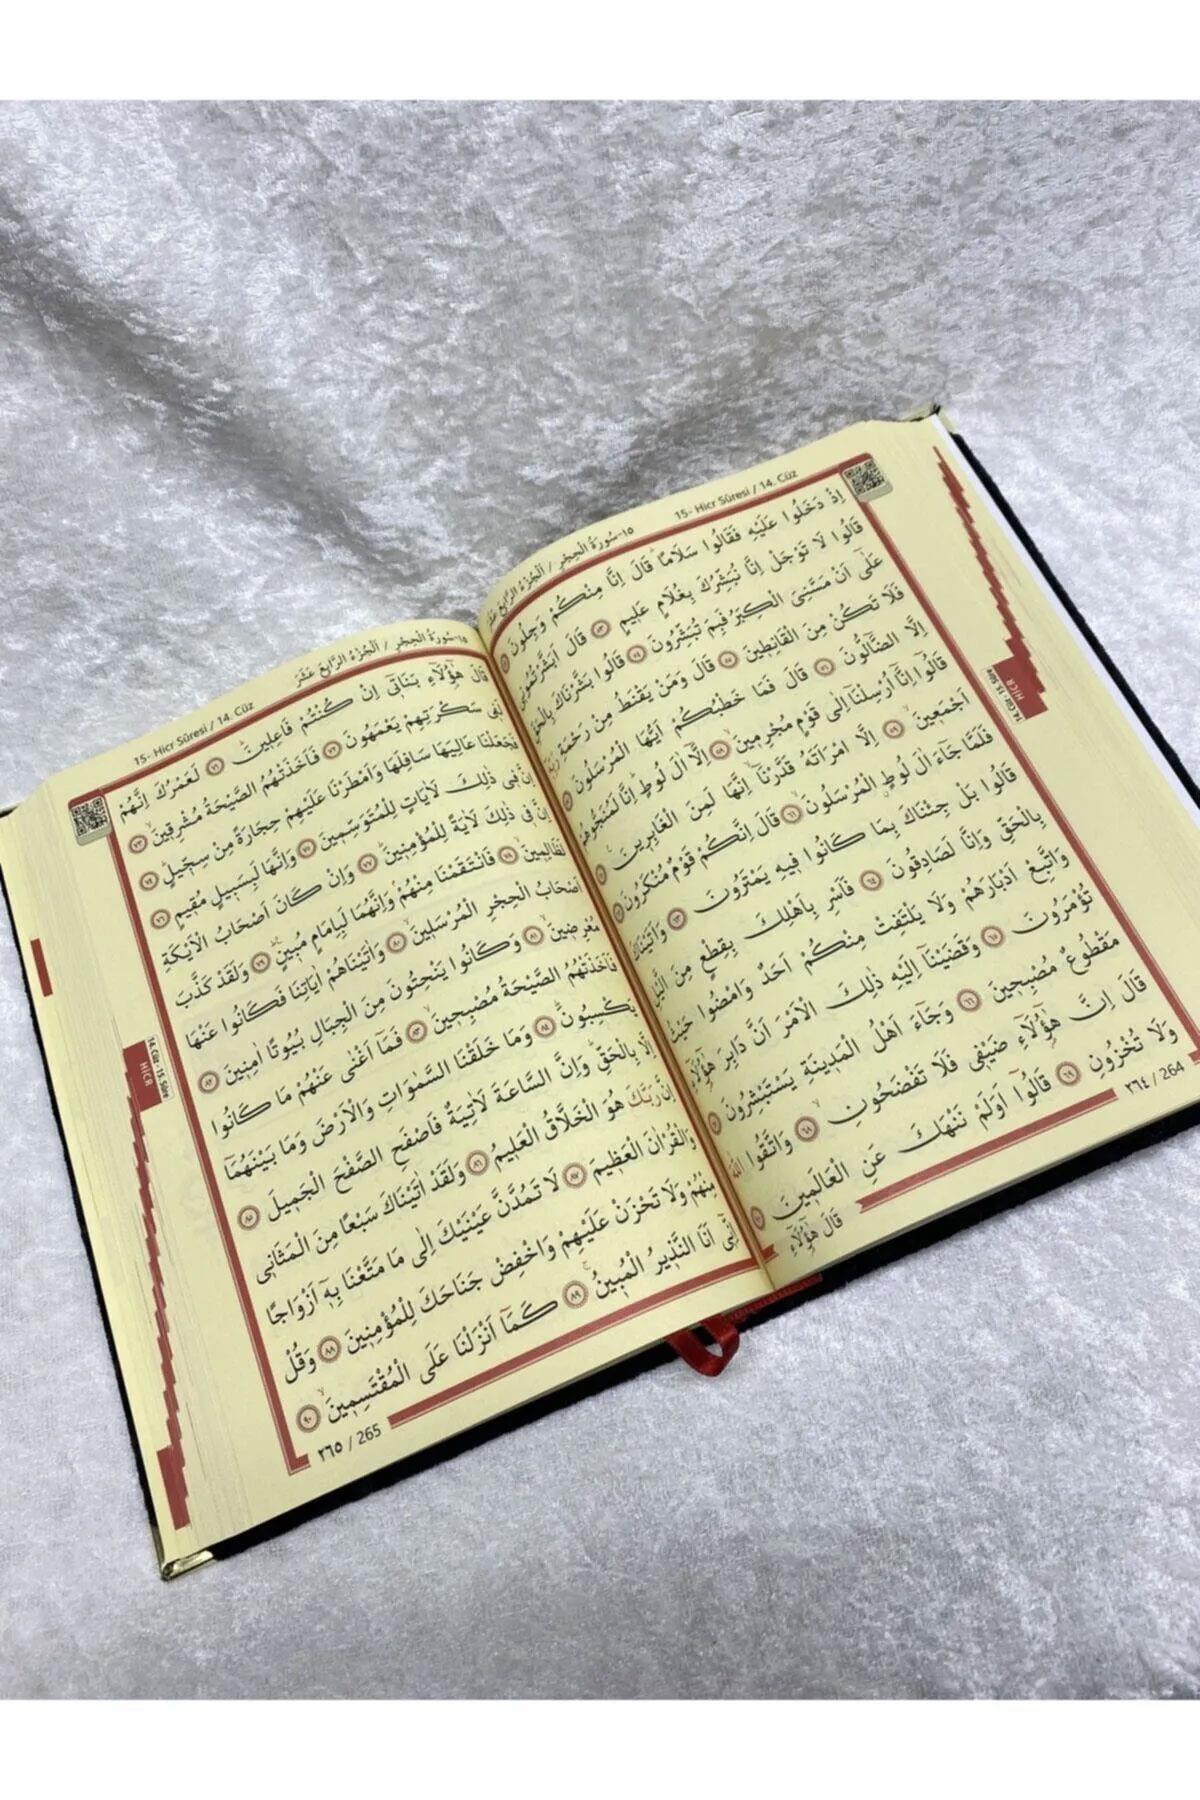 15- Hicr Sûresi / 14. Cüz
١٥-سُورَةُ الْحِجْرِ / اَلْجُزْءُ الرَّابِعَ عَشَرَ
اِذْ دَخَلُوا عَلَيْهِ فَقَالُوا سَلَامًاۜ قَالَ اِنَّا مِنْكُمْ وَجِلُونَ ٥٢
قَالُوا لَا تَوْجَلْ اِنَّا نُبَشِّرُكَ بِغُلَامٍ عَلٖيمٍ ٥٣ قَالَ اَبَشَّرْتُمُونٖي
عَلٰٓى اَنْ مَسَّنِيَ الْكِبَرُ فَبِمَ تُبَشِّرُونَ ٥٤ قَالُوا بَشَّرْنَاكَ بِالْحَقِّ
فَلَا تَكُنْ مِنَ الْقَانِطٖينَ ٥٥ قَالَ وَمَنْ يَقْنَطُ مِنْ رَحْمَةِ رَبِّهٖٓ
اِلَّا الضَّٓالُّونَ ٥٦ قَالَ فَمَا خَطْبُكُمْ اَيُّهَا الْمُرْسَلُونَ ٥٧
قَالُٓوا اِنَّٓا اُرْسِلْنَٓا اِلٰى قَوْمٍ مُجْرِمٖينَ ٥٨ اِلَّٓا اٰلَ لُوطٍۜ اِنَّا لَمُنَجُّوهُمْ
اَجْمَعٖينَ ٥٩ اِلَّا امْرَاَتَهُ قَدَّرْنَٓا اِنَّهَا لَمِنَ الْغَابِرٖينَ ٦٠
فَلَمَّا جَٓاءَ اٰلَ لُوطٍ الْمُرْسَلُونَ ٦١ قَالَ اِنَّكُمْ قَوْمٌ مُنْكَرُونَ ٦٢
قَالُوا بَلْ جِئْنَاكَ بِمَا كَانُوا فٖيهِ يَمْتَرُونَ ٦٣ وَاَتَيْنَاكَ
بِالْحَقِّ وَاِنَّا لَصَادِقُونَ ٦٤ فَاَسْرِ بِاَهْلِكَ بِقِطْعٍ مِنَ الَّيْلِ
وَاتَّبِعْ اَدْبَارَهُمْ وَلَا يَلْتَفِتْ مِنْكُمْ اَحَدٌ وَامْضُوا حَيْثُ
تُؤْمَرُونَ ٦٥ وَقَضَيْنَٓا اِلَيْهِ ذٰلِكَ الْاَمْرَ اَنَّ دَابِرَ هٰٓؤُ۬لَٓاءِ
مَقْطُوعٌ مُصْبِحٖينَ ٦٦ وَجَٓاءَ اَهْلُ الْمَدٖينَةِ يَسْتَبْشِرُونَ ٦٧
قَالَ اِنَّ هٰٓؤُ۬لَٓاءِ ضَيْفٖي فَلَا تَفْضَحُونِ ٦٨ وَاتَّقُوا اللّٰهَ
وَلَا تُخْزُونِ ٦٩ قَالُٓوا اَوَلَمْ نَنْهَكَ عَنِ الْعَالَمٖينَ ٧٠
قَالَ هٰٓؤُ۬لَٓاءِ
٢٦٤ / 264
14.Cüz - 15. Sûre
HİCR
15- Hicr Sûresi / 14. Cüz
١٥-سُورَةُ الْحِجْرِ / اَلْجُزْءُ الرَّابِعَ عَشَرَ
قَالَ هٰٓؤُ۬لَٓاءِ بَنَاتٖٓي اِنْ كُنْتُمْ فَاعِلٖينَۜ ٧١ لَعَمْرُكَ اِنَّهُمْ
لَفٖي سَكْرَتِهِمْ يَعْمَهُونَ ٧٢ فَاَخَذَتْهُمُ الصَّيْحَةُ مُشْرِقٖينَ ٧٣
فَجَعَلْنَا عَالِيَهَا سَافِلَهَا وَاَمْطَرْنَا عَلَيْهِمْ حِجَارَةً مِنْ سِجّٖيلٍۜ ٧٤
اِنَّ فٖي ذٰلِكَ لَاٰيَاتٍ لِلْمُتَوَسِّمٖينَ ٧٥ وَاِنَّهَا لَبِسَبٖيلٍ مُقٖيمٍ ٧٦
اِنَّ فٖي ذٰلِكَ لَاٰيَةً لِلْمُؤْمِنٖينَۜ ٧٧ وَاِنْ كَانَ اَصْحَابُ الْاَيْكَةِ
لَظَالِمٖينَ ٧٨ فَانْتَقَمْنَا مِنْهُمْ وَاِنَّهُمَا لَبِاِمَامٍ مُبٖينٍ ٧٩ وَلَقَدْ كَذَّبَ
اَصْحَابُ الْحِجْرِ الْمُرْسَلٖينَ ٨٠ وَاٰتَيْنَاهُمْ اٰيَاتِنَا فَكَانُوا عَنْهَا
مُعْرِضٖينَ ٨١ وَكَانُوا يَنْحِتُونَ مِنَ الْجِبَالِ بُيُوتًا اٰمِنٖينَ ٨٢
فَاَخَذَتْهُمُ الصَّيْحَةُ مُصْبِحٖينَ ٨٣ فَمَٓا اَغْنٰى عَنْهُمْ مَا كَانُوا
يَكْسِبُونَۜ ٨٤ وَمَا خَلَقْنَا السَّمٰوَاتِ وَالْاَرْضَ وَمَا بَيْنَهُمَٓا
اِلَّا بِالْحَقِّۜ وَاِنَّ السَّاعَةَ لَاٰتِيَةٌ فَاصْفَحِ الصَّفْحَ الْجَمٖيلَ ٨٥
اِنَّ رَبَّكَ هُوَ الْخَلَّاقُ الْعَلٖيمُ ٨٦ وَلَقَدْ اٰتَيْنَاكَ سَبْعًا مِنَ الْمَثَانٖي
وَالْقُرْاٰنَ الْعَظٖيمَ ٨٧ لَا تَمُدَّنَّ عَيْنَيْكَ اِلٰى مَا مَتَّعْنَا بِهٖٓ اَزْوَاجًا
مِنْهُمْ وَلَا تَحْزَنْ عَلَيْهِمْ وَاخْفِضْ جَنَاحَكَ لِلْمُؤْمِنٖينَ ٨٨ وَقُلْ
اِنّٖٓي اَنَا النَّذٖيرُ الْمُبٖينُ ٨٩ كَمَٓا اَنْزَلْنَا عَلَى الْمُقْتَسِمٖينَ ٩٠
٢٦٥ / 265
14.Cüz - 15. Sûre
HİCR